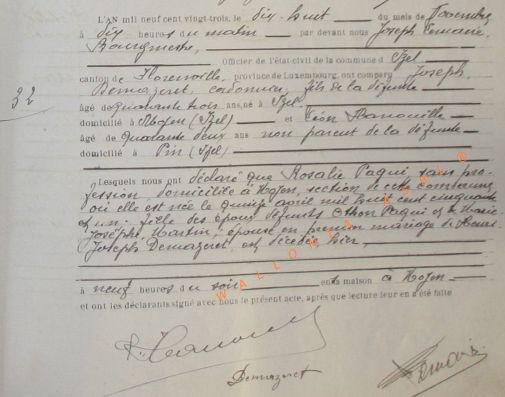 L'AN mil neuf cent vingt-trois, le dix-huit du mois de Novembre
à dix heures du matin par devant nous Joseph Lemaire,
Bourgmestre,
Officier de l'état civil de la commune d'Izel
canton de Florenville, province de Luxembourg, ont comparu Joseph
Demazeret, cordonnier, fils de la défunte
32
âgé de quarante trois ans, né à Izel
domicilié à Moyen (Izel) et Léon Hanouille
âgé de quarante deux ans non parent de la défunte
domicilié à Pin (Izel)
Lesquels nous ont déclaré que Rosalie Paqui sans pro-
fession, domiciliée à Moyen, section de cette commune
où elle est née le quinze avril mil huit cent cinquante
et un: fille des époux défunts Paqui et de Marie
Josèphe Martin, épouse en premier mariage de Henri
Joseph Demazeret, est décédée hier,
à neuf heures du soir en la maison à Moyen
et ont les déclarants signé avec nous le présent acte, après que lecture leur en a été faite
WALLONIA
Demazeret
Lemaire